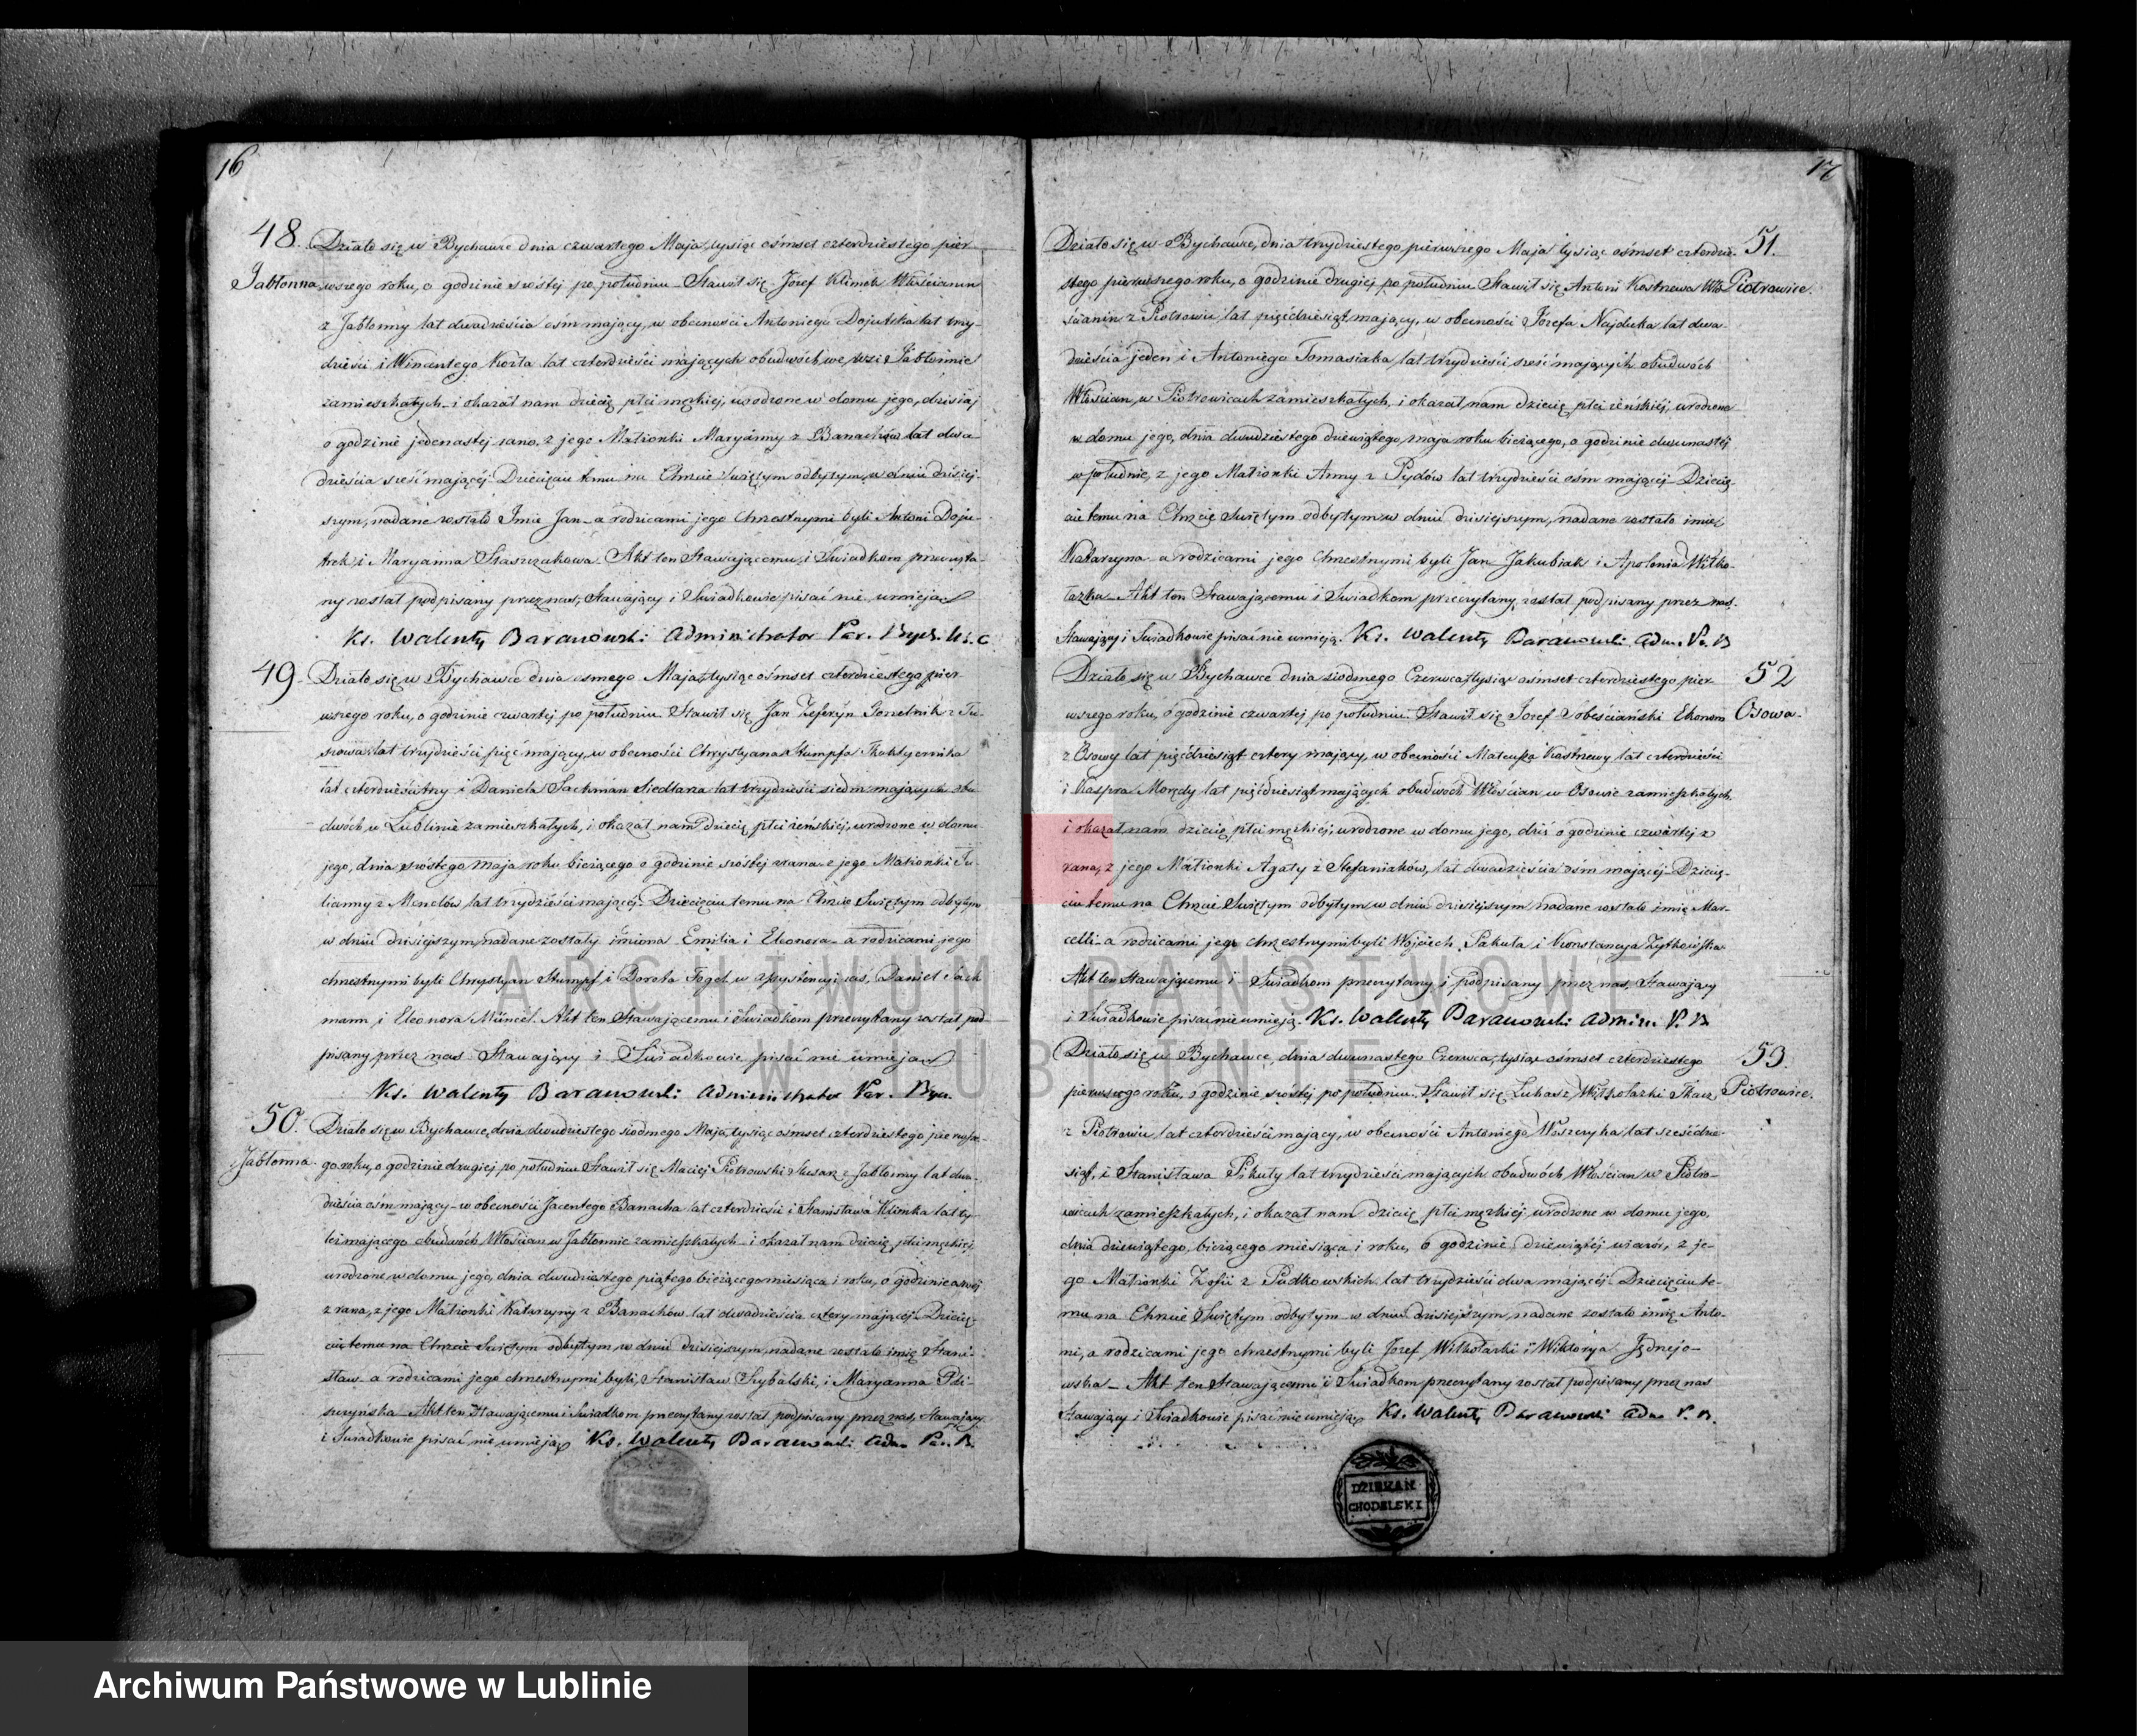 16
48.
Jabłonna
Działo się w Bychawce dnia czwartego Maja, tysiąc ośmset czterdziestego pier-
wszego roku, o godzinie szóstej po południu. Stawił się Józef Klimek Włościanin
z Jabłonny lat dwadzieścia ośm mający, w obecności Antoniego Dojutka lat trzy-
dzieści i Wincentego Korta lat czterdzieści mających obudwóch we wsi Jabłonnie
zamieszkałych i okazał nam dziecię płci męzkiej, urodzone w domu jego, dzisiaj
o godzinie jedenastej rano, z jego Małżonki Maryanny z Banachów lat dwa-
dzieścia sześć mającej. Dziecięciu temu na Chrzcie Świętym odbytym w dniu dzisiej-
szym, nadane zostało Imie Jan a rodzicami jego Chrzestnymi byli Antoni Doju-
trek, i Maryanna Staszczakowa. Akt ten Stawającemu, i Świadkom przeczyta-
ny został podpisany przez nas, Stawający i Świadkowie pisać nie umieją
Ks. Walenty Baranowski Administrator Par. Bych.
49.
Działo się w Bychawce dnia ósmego Maja, tysiąc ośmset czterdziestego pier-
wszego roku, o godzinie czwartej po południu. Stawił się Jan Zeferyn
lat trzydzieści pięć mający, w obecności Chrystyana Stumpfa
lat czterdzieści trzy i Daniela Sachman Siedlarza lat trzydzieści siedm mających obu-
dwóch w Lublinie zamieszkałych, i okazał nam dziecię płci żeńskiej, urodzone w domu
jego, dnia szóstego maja roku bieżącego o godzinie szóstej zrana z jego Małżonki Ju-
lianny z lat trzydzieści mającej. Dziecięciu temu na Chrzcie Świętym odbytym
w dniu dzisiejszym, nadane zostały imiona Emilia i Eleonora a rodzicami jego
chrzestnymi byli Chrystyan Stumpf i Dorota Fogel w assystencyi zaś, Daniel Sach
mann i Eleonora Müncel. Akt ten Stawającemu i Świadkom przeczytany został pod-
pisany przez nas Stawający i Świadkowie pisać nie umieją
Ks. Walenty Baranowski Administrator Par. Bych.
50.
Jabłonna
Działo się w Bychawce, dnia dwudziestego siódmego Maja, tysiąc ośmset czterdziestego pierwsze-
go roku, o godzinie drugiej po południu Stawił się Maciej Piotrowski z Jabłonny lat dwa-
dzieścia ośm mający w obecności Jacentego Banacha lat czterdzieści i Stanisława Klimka lat ty-
leż mającego obudwóch Włościan w Jabłonnie zamieszkałych i okazał nam dziecię płci męzkiej,
urodzone w domu jego, dnia dwudziestego piątego bieżącego miesiąca i roku, o godzinie
z rana, z jego Małżonki Katarzyny z Banachów lat dwadzieścia cztery mającej. Dziecię-
ciu temu na Chrzcie Świętym odbytym w dniu dzisiejszym, nadane zostało imię Stani-
sław a rodzicami jego chrzestnymi byli, Stanisław Rybalski, i Maryanna
Akt ten Stawającemu i Świadkom przeczytany został podpisany przez nas, Stawający
i Świadkowie pisać nie umieją Ks. Walenty Baranowski Adm. Par. B.
17
51.
Piotrowice.
Działo się w Bychawce, dnia trzydziestego pierwszego Maja tysiąc ośmset czterdzie-
stego pierwszego roku, o godzinie drugiej po południu Stawił się Antoni Kostrzewa Wło-
ścianin z Piotrowic lat pięćdziesiąt mający, w obecności Józefa Najduka lat dwa-
dzieścia jeden i Antoniego Tomasiaka lat trzydzieści sześć mających obudwóch
Włościan, w Piotrowicach zamieszkałych, i okazał nam dziecię płci żeńskiej, urodzone
w domu jego, dnia dwudziestego dziewiątego maja roku bieżącego, o godzinie dwunastej
w południe, z jego Małżonki Anny z Pydów lat trzydzieści ośm mającej. Dziecię-
ciu temu na Chrzcie Świętym odbytym w dniu dzisiejszym, nadane zostało imie
Katarzyna a rodzicami jego Chrzestnymi byli Jan Jakubiak i Apolonia Witko-
łazka. Akt ten Stawającemu i Świadkom przeczytany, został podpisany przez nas.
Stawający i Świadkowie pisać nie umieją. Ks. Walenty Baranowski Adm. P. B
52
Osowa.
Działo się w Bychawce dnia siódmego Czerwca, tysiąc ośmset czterdziestego pier-
wszego roku, o godzinie czwartej po południu. Stawił się Józef Sobeściański Ekonom
z Osowy lat pięćdziesiąt cztery mający, w obecności Mateusza Kostrzewy lat czterdzieści
i Kaspra Morędy lat pięćdziesiąt mających obudwóch Włościan w Osowie zamieszkałych,
i okazał nam dziecię płci męzkiej, urodzone w domu jego, dziś o godzinie czwartej z
rana, z jego Małżonki Agaty z Stefaniaków, lat dwadzieścia ośm mającej. Dziecię-
ciu temu na Chrzcie Świętym odbytym w dniu dzisiejszym nadane zostało imię Mar-
celli a rodzicami jego chrzestnymi byli Wojciech Pakuła i Konstancya Żytkowska
Akt ten Stawającemu i Świadkom przeczytany i podpisany przez nas, Stawający
i Świadkowie pisać nie umieją. Ks. Walenty Baranowski Admin. P. B
53.
Piotrowice.
Działo się w Bychawce, dnia dwunastego Czerwca, tysiąc ośmset czterdziestego
pierwszego roku, o godzinie szóstej po południu. Stawił się Łukasz Witkołazki Tkacz
z Piotrowic, lat czterdzieści mający, w obecności Antoniego Wiszczyka lat sześćdzie-
siąt, i Stanisława Pikuły lat trzydzieści mających obudwóch Włościan w Piotro-
wicach zamieszkałych, i okazał nam dziecię płci męzkiej urodzone w domu jego,
dnia dziewiątego bieżącego miesiąca i roku, o godzinie dziewiątej wieczór, z je-
go Małżonki Zofii z Pudłowskich lat trzydzieści dwa mającej. Dziecięciu te-
mu na Chrzcie Świętym odbytym w dniu dzisiejszym, nadane zostało imię Anto-
ni, a rodzicami jego chrzestnymi byli Józef Witkołazki i Wiktorya Jędrzejo-
wska. Akt ten Stawającemu i Świadkom przeczytany został podpisany przez nas
Stawający i Świadkowie pisać nie umieją Ks. Walenty Baranowski Adm. P. B.
DZIEKAN
CHODELSKI
ARCHIWUM PAŃSTWOWE
W LUBLINIE
Archiwum Państwowe w Lublinie